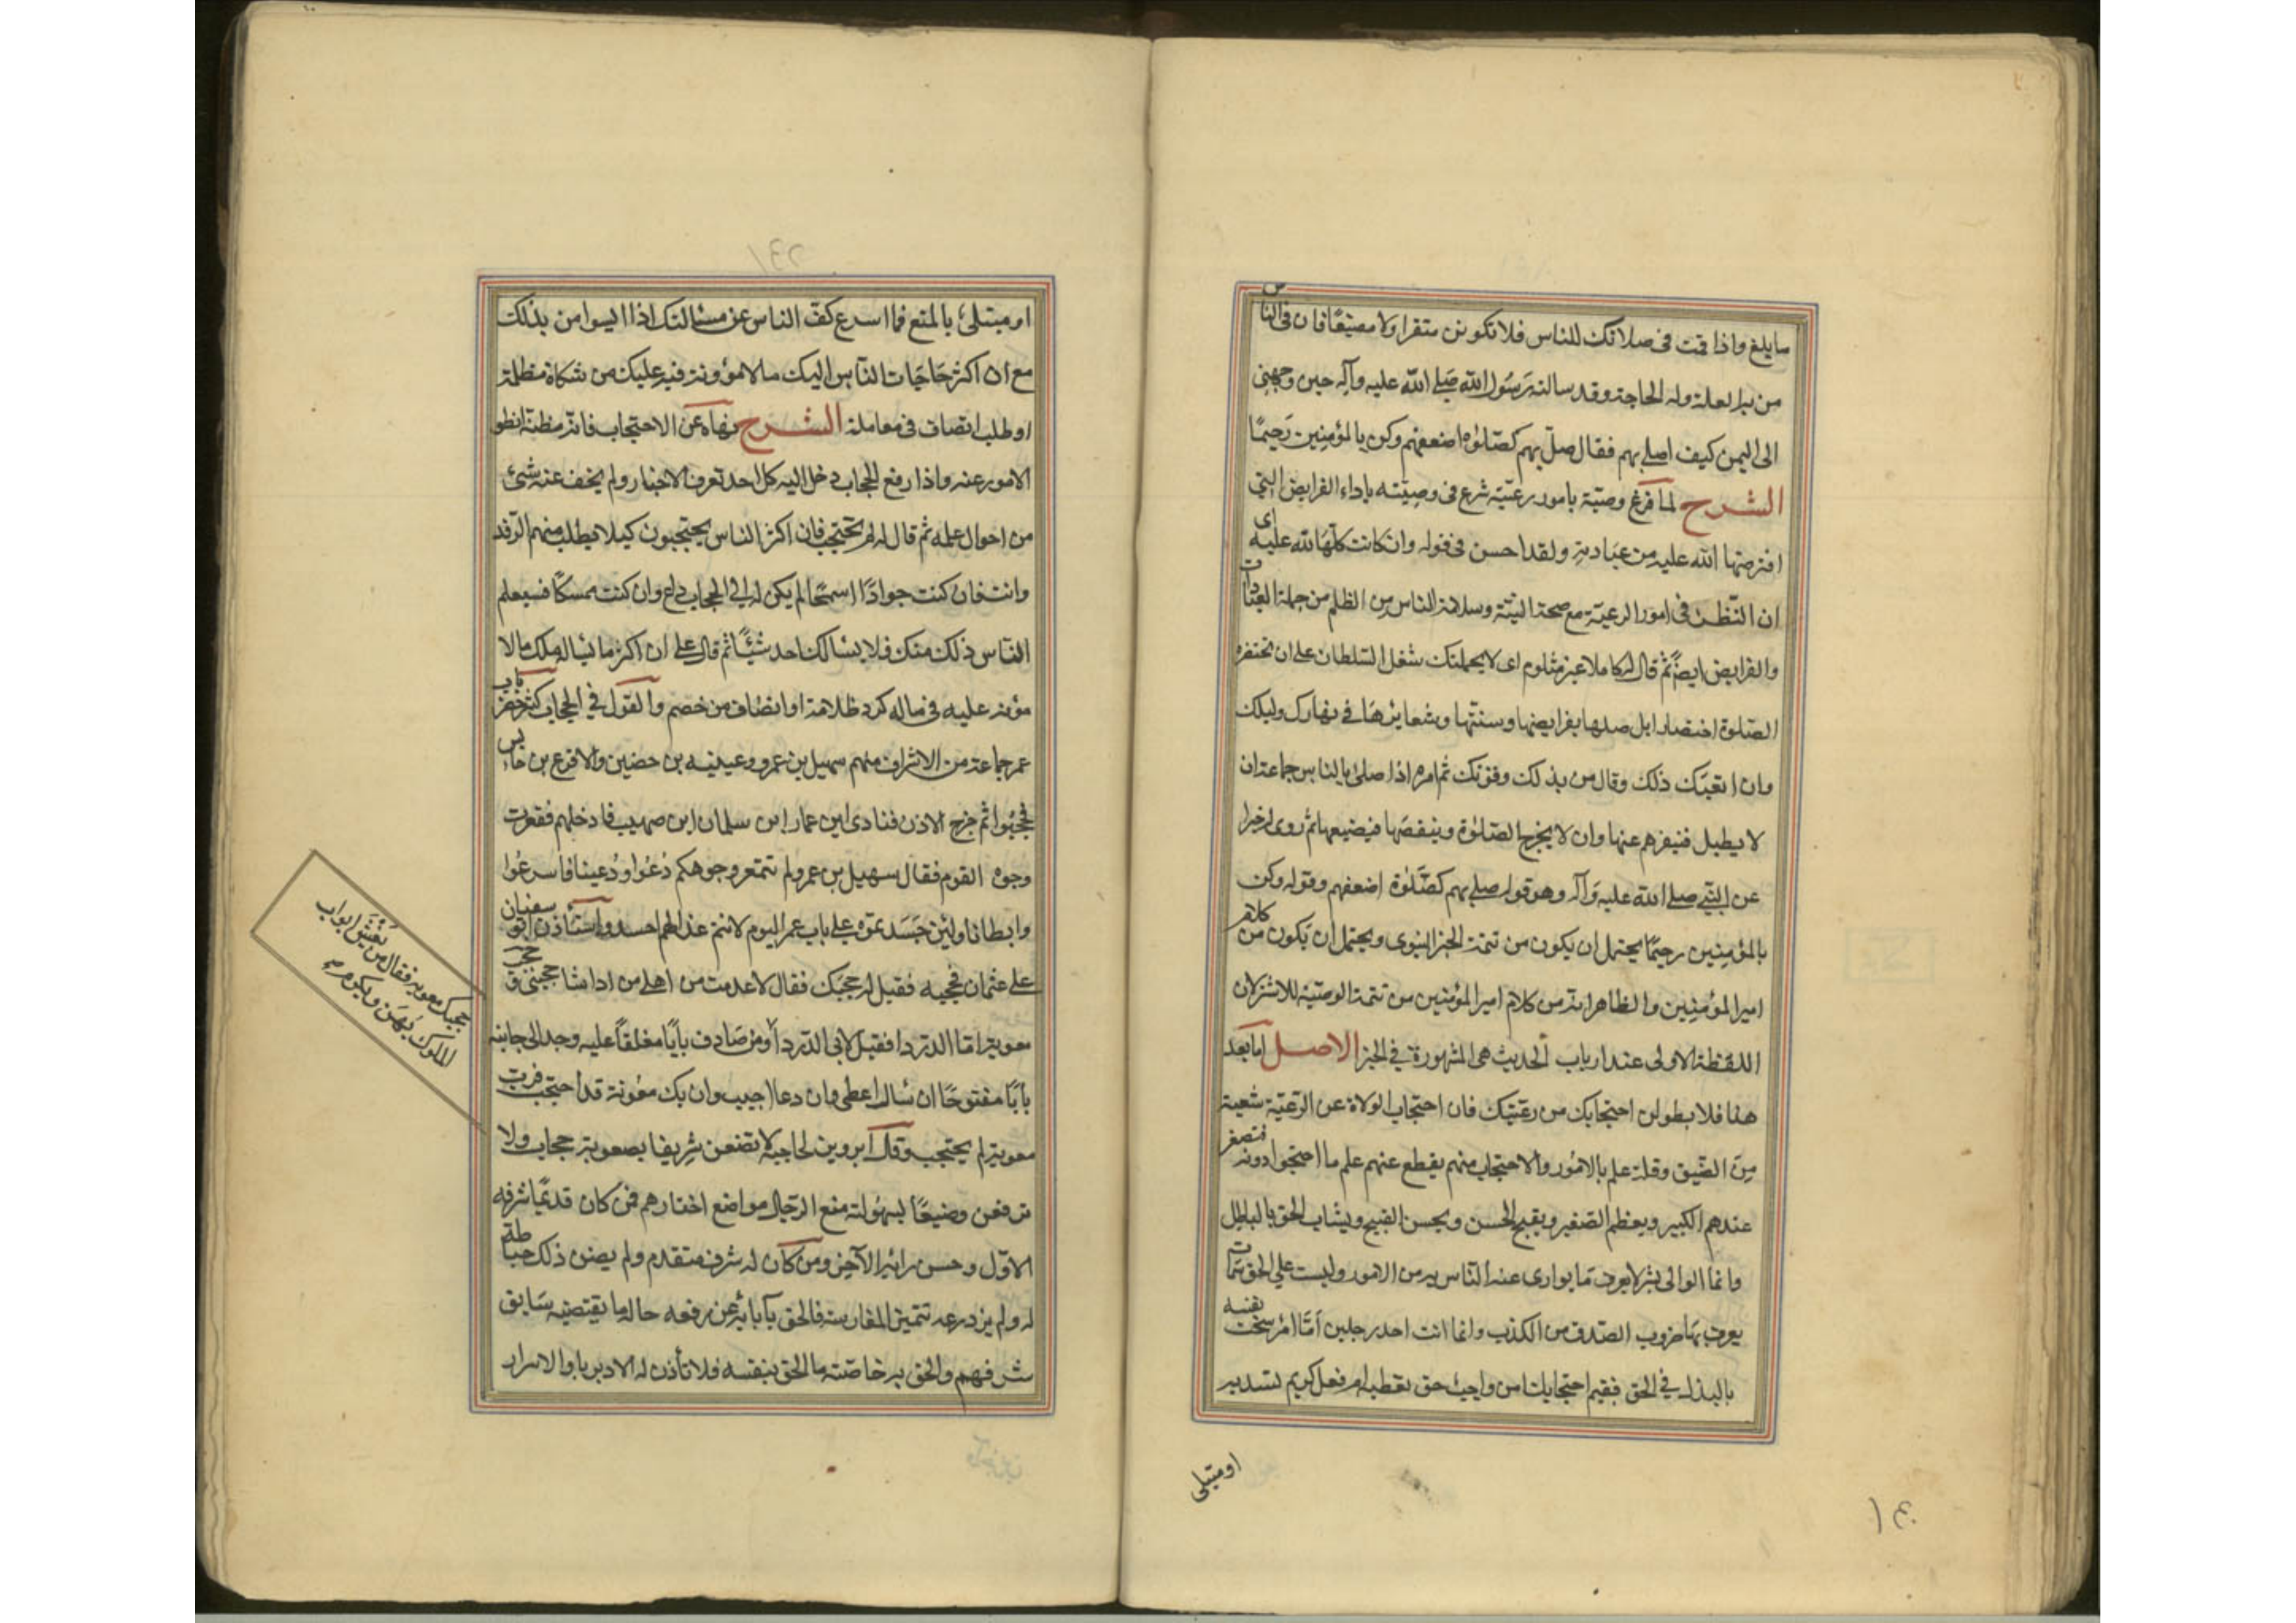 ما بلغ واذا قمت فى صلاتك للناس فلا تكونن منفرا ولا مضيعًا فان فى الناس
من به العلة وله الحاجة وقد سالت رَسُول الله صَلى الله عليه وآله حين وجهنى
الى اليمن كيف اصلى بهم فقال صلّ بهم كصَلوٰة اضعفهم وكن بالمؤمِنين رَحيمًا
الشرح لما فرغ وصيّة بامور رعيّته شرع فى وصيّته باداء الفرايض التى
افترضها الله عليه من عبادته ولقد احسن فى قوله وان كانت كلّهَا لله عليه اى
ان النّظر فى امور الرعيّة مع صحة النيّة وسلامة الناس من الظلم من جملة العبادات
والفرايض ايضًا ثم قال له كاملا غير مثلوم اى لا يحملنك شغل السّلطان على ان تختصر
الصّلوة اختصارا بل صلها بفرايضها وسننها وشعايرهَا فى نهارك وليلك
وان اتعبَك ذلك وقال من بذلك وقوتك ثم امره اذا صلى بالناس جماعة ان
لا يطيل فينفرهم عنها وان لا يخرج الصَلوٰة وينقصَها فيضيعها ثم روى خبرا
عن النبّي صلى الله عليه وَآله وهو قوله صلى بهم كصَّلوٰة اضعفهم وقوله وكن
بالمؤمِنين رحيمًا يحتمل ان يكون من تتمة الخبر النبوى ويحتمل ان يكون من كلام
امير المؤمنِين والظاهر انه من كلام امير المؤمنين من تتمة الوصيّة للاشتر لان
اللفظة الاولى عند ارباب الحديث هى المشهورة فى الخبر الاصل اما بعد
هذا فلا يطولن احتجابك من رعيّتك فان احتجاب الولاة عن الرّعيّة شعبة
مِن الضّيق وقلة علم بالامُور والاحتجاب منهم يقطع عنهم علم ما احتجبوا دونه فيصغر
عندهم الكبير ويعظم الصّغير ويقبح الحسن ويحسن القبيح ويشاب الحق بالباطل
وانما الوالى بشر لا يعرف ما يوارى عنه الناس به من الامور وليست على الحق سمات
يعرف بهَا ضروب الصّدق من الكذب وانما انت احد رجلين اَمّا امرء سخت نفسه
بالبذل فى الحق ففيم احتجابك من واجب حق تعطيه او فعل كريم تسديه
او مبتلى
او مبتلىٰ بالمنع فما اسرع كفّ الناس عن مسئالتك اذا ايسوا من بذلك
مع ان اكثر حَاجَات النّاس اليك ما لا مؤونة فيه عليك من شكاة مظلمة
او طلب انصاف فى معاملة الشرح نهاه عن الاحتجاب فانه مظنة انطوا
الامور عنه واذا رفع الحجاب دخل اليه كل احد تعرف الاخبار ولم يخف عنه شئ
من احوال عمله ثم قال له لم تحتجب فان اكثر الناس يحتجبون كيلا يطلب منهم الرّفد
وانت فان كنت جوادًا سمحًا لم يكن لك الى الحجاب داع وان كنت ممسكًا فسيعلم
النّاس ذلك منك فلا يسالك احد شيئًا ثم قال على ان اكثر ما يساله منك ما لا
مؤنة عليه فى ماله كرد ظلامة او انصاف من خصم والقول فى الحجاب كثير حضر باب
عمر جماعة من الاشراف منهم سهيل بن عمرو وعيينه بن حضين والاقرع بن حابس
فحجبُوا ثم خرج الاذن فنادى اين عمار اين سلمان اين صهيب فادخلهم فتمعرت
وجوه القوم فقال سهيل بن عمرو لم تتمعر وجوهكم دُعوا ودُعينا فاسرعُوا
وابطانا ولئن حَسَدتموه على باب عمر اليوم لانتم غدا لهم احسد واستأذن ابو سفيان
على عثمان فحجبه فقيل له حجبك فقال لا عدمت من اهلى من اذا شا حجبنى حجب
معوية ابا الدّردا فقيل لابى الدّردا ومن صَادف بابًا مغلقًا عليه وجد الى جانبه
بابًا مفتوحًا ان سال اعطى وان دعا اجيب وان يك معوُنة قد احتجب فرب
معوية لم يحتجب وقال ابرويز لحاجبه لا تضعن شريفا بصعوبة حجاب ولا
ترفعن وضيعًا لسهُولته ضع الرّجال مواضع اخطارهم فمن كان قديمًا شرفه
الاوّل وحسن رائيه الآخر ومن كان له شرف متقدم ولم يصن ذلك حياطة
له ولم يزدرعه تتمير المغارسة فالحق بآبائه عن رفعه حاله ما يقتضيه سَابق
شرفهم والحق به خاصّته ما الحق بنفسه فلا تأذن له الا دبريا والاسرار
حجبك معوية فقال من يغش ابواب
الملوك يُهَن ويكرم